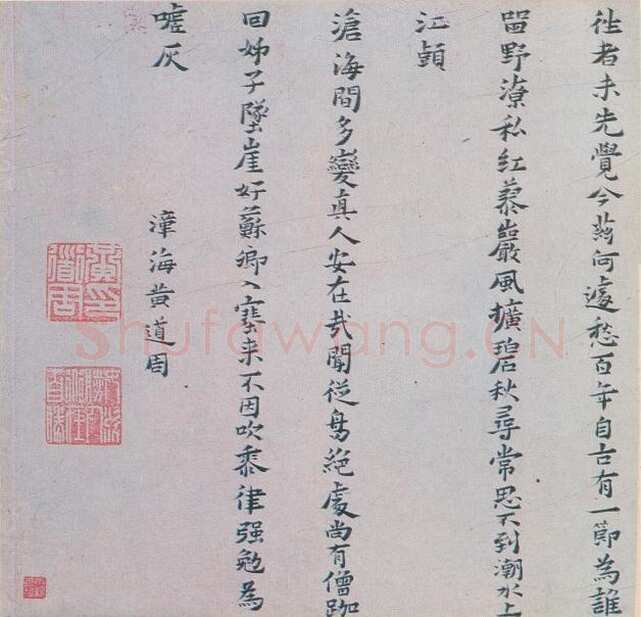 往者未先覺今茲何邊愁百年自古有一節為誰
留野潦私紅蓼嚴風擴碧秋尋常思不到潮水上
江頭
滄海間多變真人安在哉聞從鳥絕處尚有僧跏
回姊子墜崖好蘇卿入塞来不因吹黍律强勉為
噓灰
漳海黃道周
Shufawang.CN